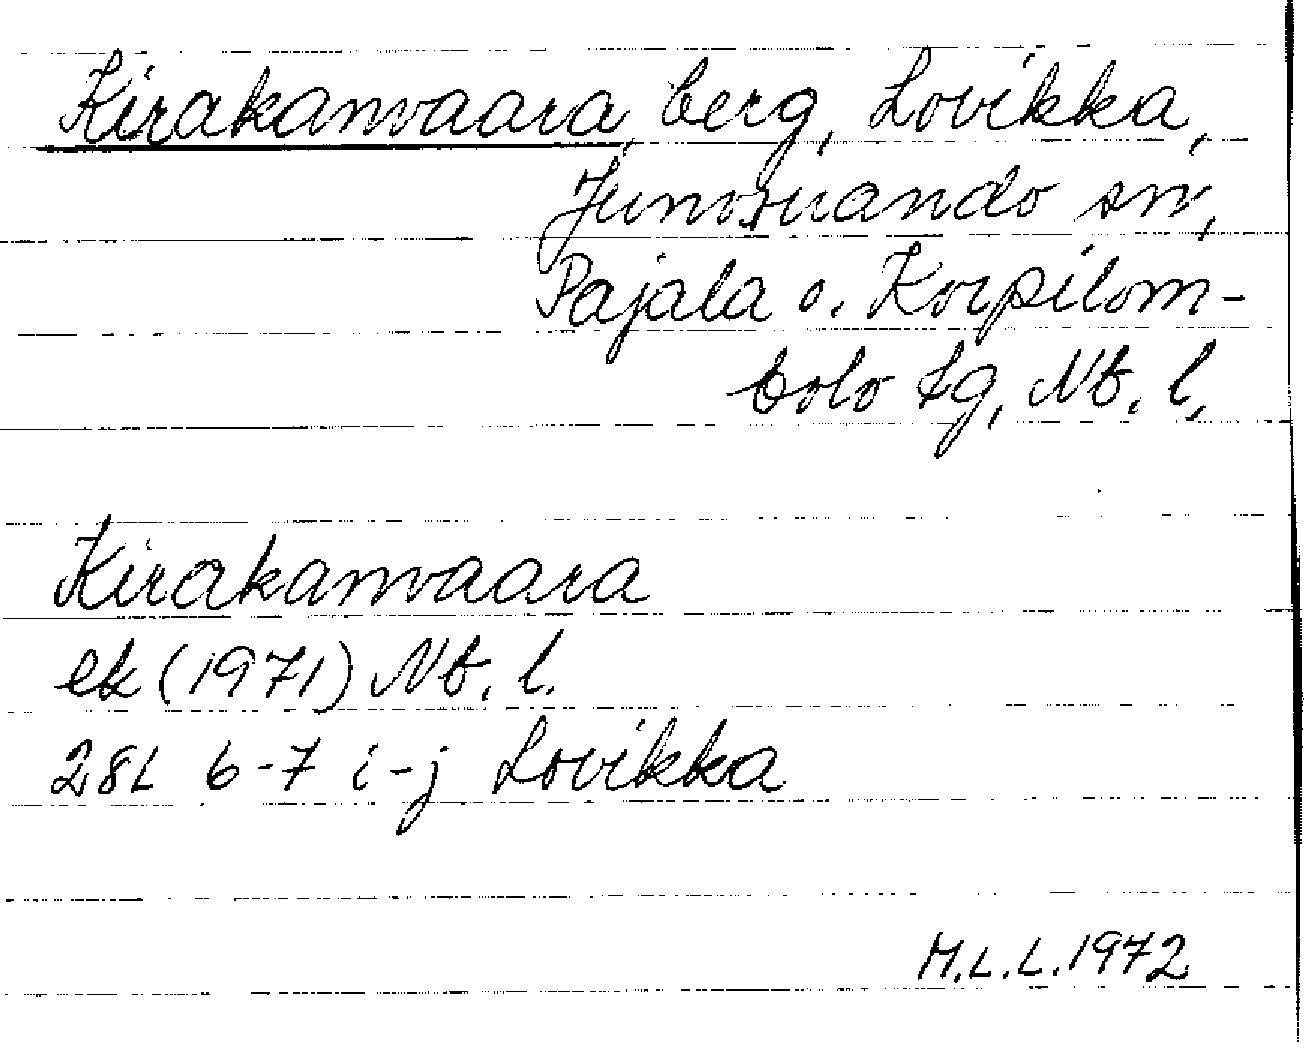 Kirakanvaara, berg, Lovikka,
Junosuando sn,
Pajala o. Korpilom-
bolo tg, Nb. l.
Kirakanvaara
ek (1971) Nb. l.
28L 6-7 i-j Lovikka
M.L.L. 1972